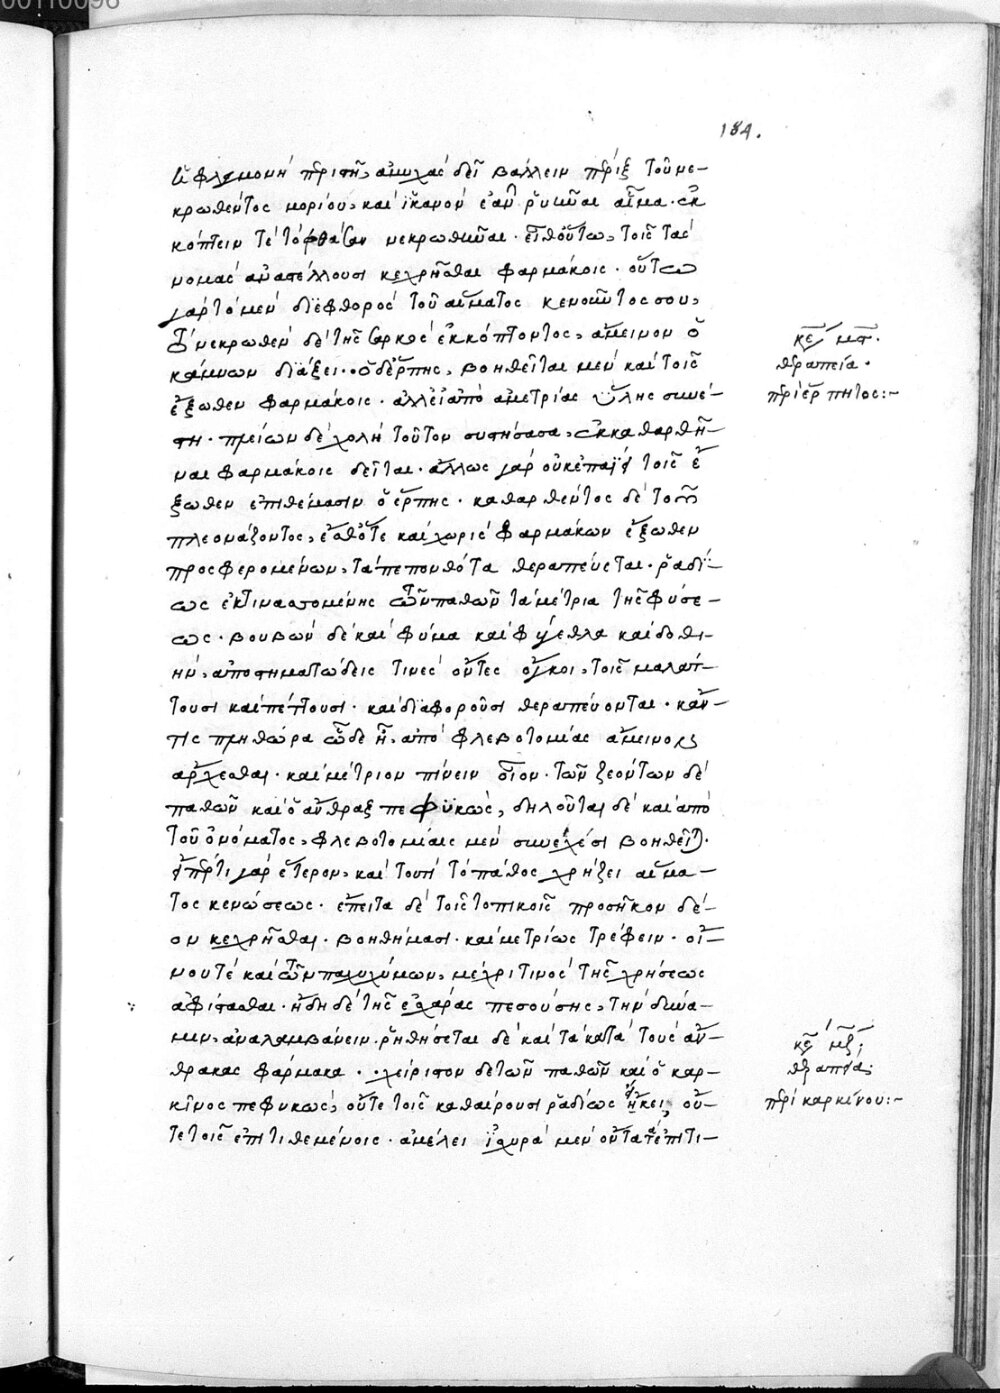 184.
φλεγμονή περιτῆ, ἀμυχὰς δεῖ βάλλειν πέριξ τοῦ νε-
κρωθέντος μορίου, καὶ ἱκανὸν ἐὰν ῥυῆναι αἷμα. ἐκ
κόπτειν τε τὸ φθάσαν νεκρωθῆναι. εἶθ οὕτω, τοῖς τὰς
νομὰς ἀναστέλλουσι κεχρῆσθαι φαρμάκοις. οὕτω
γὰρ τὸ μὲν διεφθορὸς τοῦ αἵματος κενοῦντος σου,
τὸ νεκρωθὲν δὲ τῆς σαρκὸς ἐκκόπτοντος, ἄμεινον ὁ
κάμνων διάξει. ὁ δ ἕρπης, βοηθεῖται μὲν καὶ τοῖς
ἔξωθεν φαρμάκοις. ἀλλ εἰ ἀπὸ ἀμετρίας ὕλης συνέ-
στη. πλείων δὲ χολὴ τοῦτον συστήσασα, ἐκκαθαρθῆ-
ναι φαρμάκοις δεῖται. ἄλλως γὰρ οὐκ ἐπαΐει τοῖς ἔ
ξωθεν ἐπιθέμασιν ὁ ἕρπης. καθαρθέντος δὲ τοῦ
πλεονάζοντος, ἔσθ ὅτε καὶ χωρὶς φαρμάκων ἔξωθεν
προσφερομένων, τὰ πεπονθότα θεραπεύεται. ῥαδί-
ως ἐκτινασσομένης τῶν παθῶν τὰ μέτρια τῆς φύσε-
ως. βουβὼν δὲ καὶ φύμα καὶ φύγεθλα καὶ δοθι-
ὴν, ἀποστηματώδεις τινὲς ὄντες ὄγκοι, τοῖς μαλάτ-
τουσι καὶ πέττουσι. καὶ διαφοροῦσι θεραπεύονται. κἄν
τις πληθώρα ὧδε ᾖ, ἀπὸ φλεβοτομίας ἄμεινον
ἄρχεσθαι. καὶ μέτριον πίνειν οἶνον. τῶν ζεόντων δὲ
παθῶν καὶ ὁ ἄνθραξ πεφυκὼς, δηλοῦται δὲ καὶ ἀπὸ
τοῦ ὀνόματος, φλεβοτομίαις μὲν συνεχέσι βοηθεῖται.
εἴπέρ τι γὰρ ἕτερον, καὶ τουτὶ τὸ πάθος χρήζει αἵμα-
τος κενώσεως. ἔπειτα δὲ τοῖς τοπικοῖς προσῆκον δέ-
ον κεχρῆσθαι. βοηθήμασι. καὶ μετρίως τρέφειν. οἴ-
νου τὲ καὶ τῶν παχυχύμων, μέχρι τινὸς τῆς χρήσεως
ἀφίστασθαι. ἤδη δὲ τῆς ἐσχάρας πεσούσης, τὴν δύνα-
μιν, ἀναλαμβάνειν. ῥηθήσεται δὲ καὶ τὰ κατὰ τοὺς ἄν-
θρακας φάρμακα. χείριστον δὲ τῶν παθῶν καὶ ὁ καρ-
κῖνος πεφυκὼς, οὔτε τοῖς καθαίρουσι ῥαδίως εἴκει, οὔ-
τε τοῖς ἐπιτιθεμένοις. ἀμέλει ἰσχυρὰ μὲν ὄντα τὰ ἐπιτι-
θεραπεία.
περὶ ἕρπητος:-
θεραπεία
περὶ καρκίνου:-